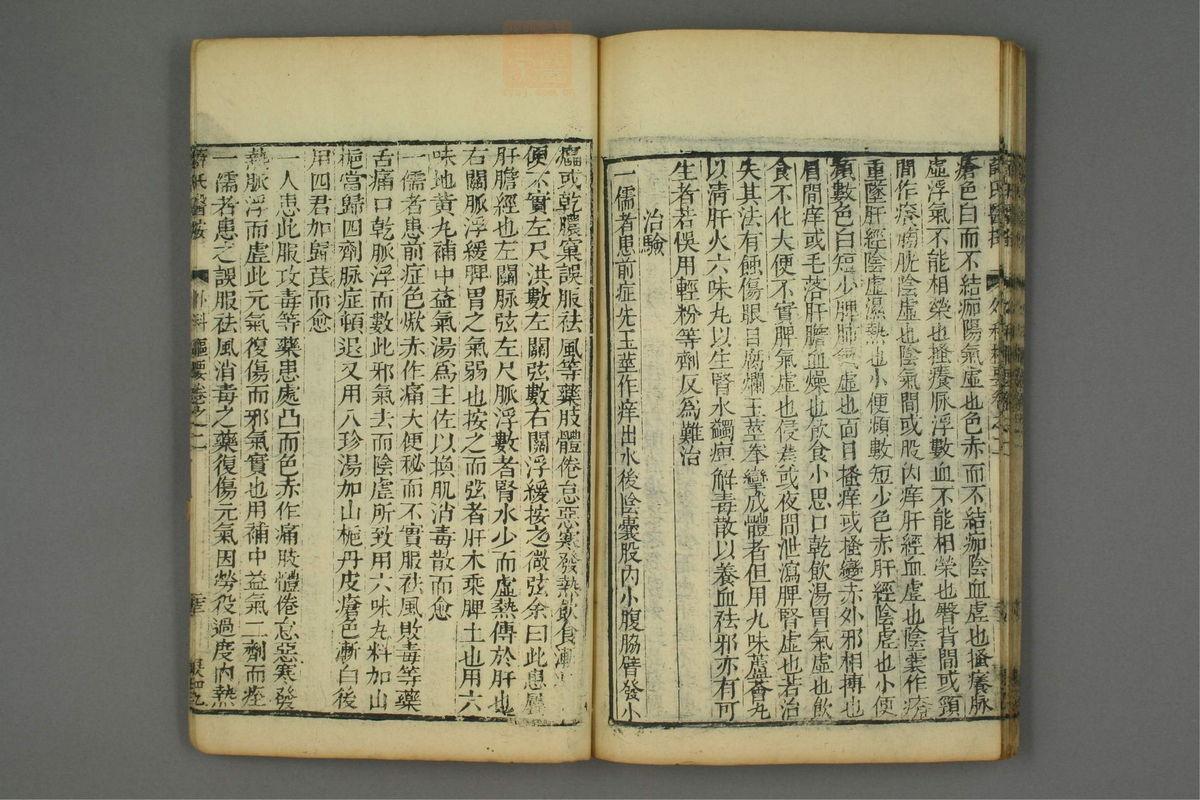 瘡色白而不結痂陽氣虛也色赤而不結痂陰血虛也搔癢脉
虛浮氣不能相榮也搔癢脉浮數血不能相榮也臀背間或頸
間作痒膀胱陰虛也陰氣間或股內痒肝經血虛也陰囊作痒
重墜肝經陰虛濕熱也小便頻數短少色赤肝經陰虛也小便
頻數色白短少脾肺氣虛也面目搔痒或搔變赤外邪相摶也
眉間痒或毛落肝膽血燥也飲食少思口乾飲湯胃氣虛也飲
食不化大便不實脾氣虛也侵晨或夜間泄瀉脾腎虛也若治
失其法有蝕傷眼目腐爛玉莖拳攣成體者但用九味蘆薈丸
以清肝火六味丸以生腎水蠲痺解毒散以養血祛邪亦有可
生者若悞用輕粉等劑反為難治
治驗
一儒者患前症先玉莖作痒出水後陰囊股內小腹脇臂發小
瘟或乾膿窠誤服祛風等藥肢體倦怠惡寒發熱飲食漸
便不實左尺洪數左關弦數右關浮緩按之微弦余曰此患屬
肝膽經也左關脉弦左尺脈浮數者腎水少而虛熱傳於肝也
右關脈浮緩脾胃之氣弱也按之而弦者肝木乘脾土也用六
味地黃丸補中益氣湯為主佐以換肌消毒散而愈
一儒者患前症色焮赤作痛大便秘而不實服祛風敗毒等藥
舌痛口乾脈浮而數此邪氣去而陰虛所致用六味丸料加山
梔當歸四劑脉症頓退又用八珍湯加山梔丹皮瘡色漸白後
用四君加歸芪而愈
一人患此服攻毒等藥患處凸而色赤作痛肢體倦怠惡寒發
熱脈浮而虛此元氣復傷而邪氣實也用補中益氣二劑而痊
一儒者患之誤服祛風消毒之藥復傷元氣因勞役過度內熱
薛氏醫按 外科樞要卷之二